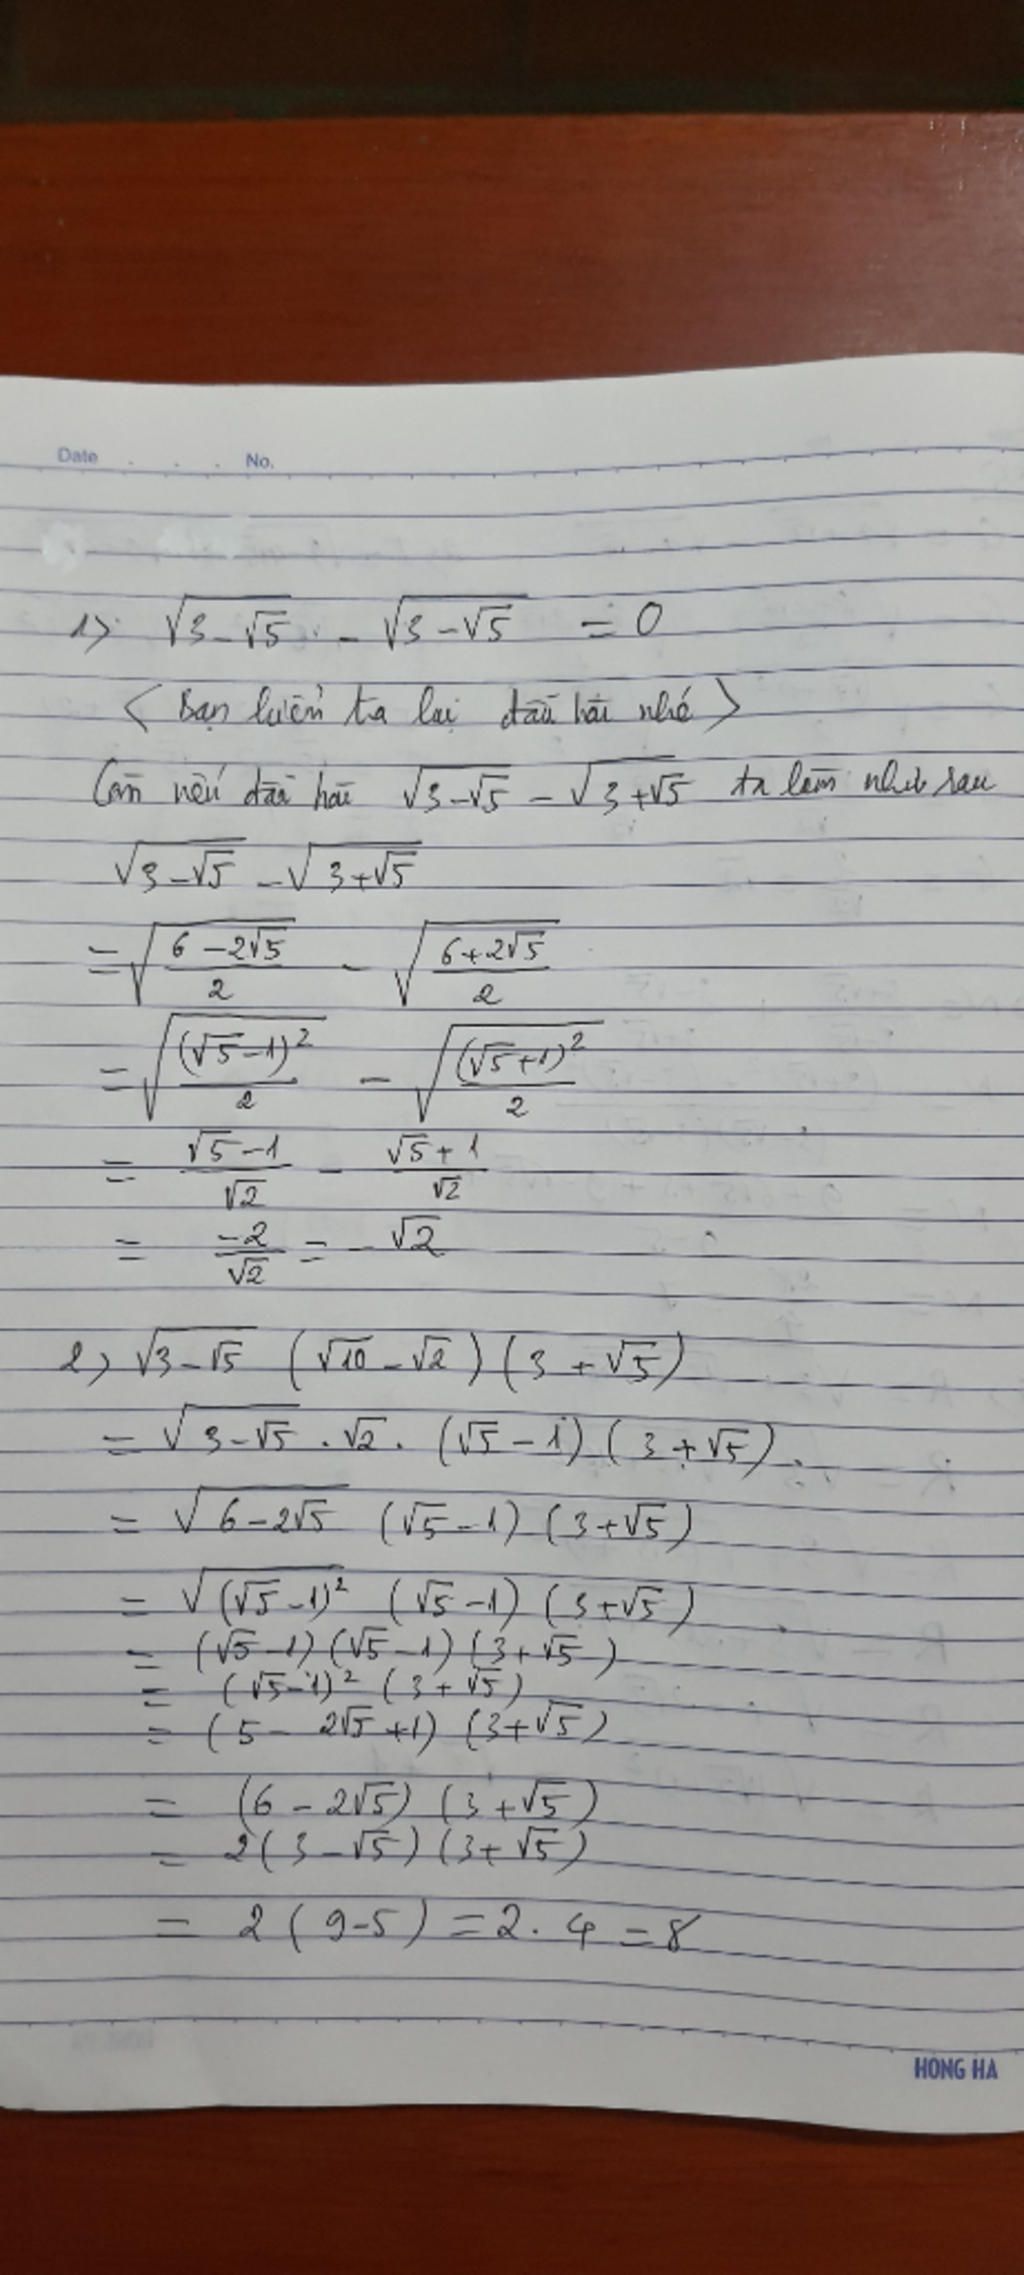 Date . . . . No.
1) √(3-√5) - √(3-√5) = 0
< Bạn kiểm tra lại đầu bài nhé >
Còn nếu đầu bài √(3-√5) - √(3+√5) ta làm như sau
√(3-√5) - √(3+√5)
= √((6-2√5)/2) - √((6+2√5)/2)
= √((√5-1)²/2) - √((√5+1)²/2)
= (√5-1)/√2 - (√5+1)/√2
= -2/√2 = -√2
2) √(3-√5) (√10-√2) (3+√5)
= √(3-√5) . √2 . (√5-1) (3+√5)
= √(6-2√5) (√5-1) (3+√5)
= √((√5-1)²) (√5-1) (3+√5)
= (√5-1) (√5-1) (3+√5)
= (√5-1)² (3+√5)
= (5-2√5+1) (3+√5)
= (6-2√5) (3+√5)
= 2(3-√5) (3+√5)
= 2(9-5) = 2.4 = 8
HONG HA